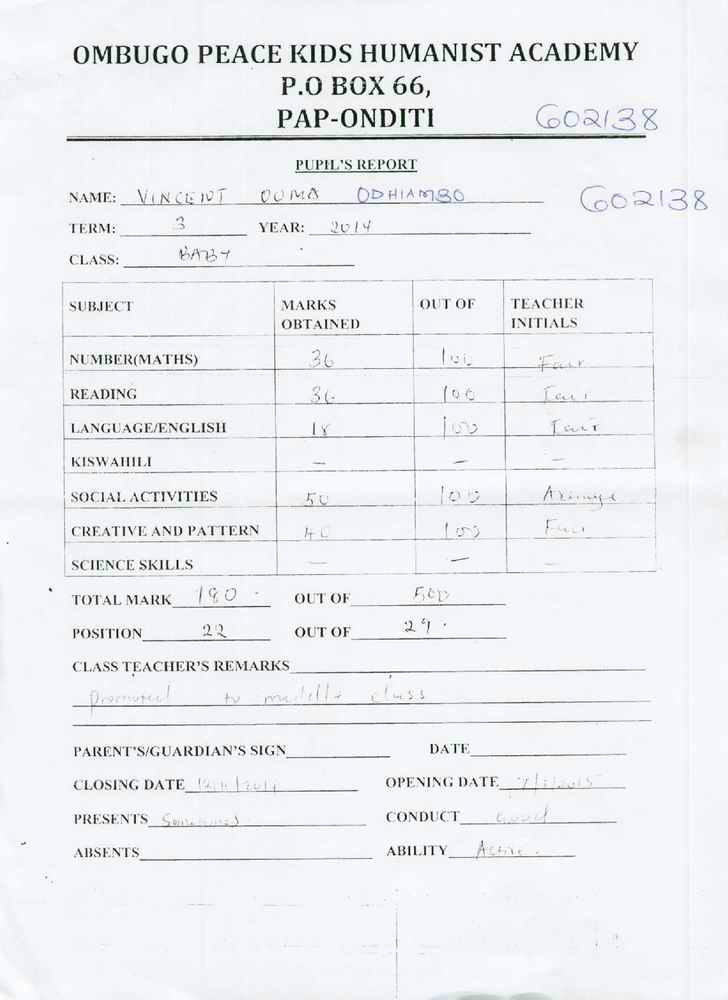 OMBUGO PEACE KIDS HUMANIST ACADEMY
P.O BOX 66,
PAP-ONDITI G02138
PUPIL'S REPORT
NAME: VINCENT OUMA ODHIAMBO G02138
TERM: 3 YEAR: 2014
CLASS: BABY
SUBJECT MARKS OBTAINED OUT OF TEACHER INITIALS
NUMBER(MATHS) 36 100 Fair
READING 36 100 Fair
LANGUAGE/ENGLISH 18 100 Fair
KISWAHILI – – –
SOCIAL ACTIVITIES 50 100 Average
CREATIVE AND PATTERN 40 100 Fair
SCIENCE SKILLS – – –
TOTAL MARK 180 OUT OF 500
POSITION 22 OUT OF 29
CLASS TEACHER'S REMARKS
Promoted to middle class
PARENT'S/GUARDIAN'S SIGN DATE
CLOSING DATE OPENING DATE 7/1/2015
PRESENTS Sometimes CONDUCT Good
ABSENTS ABILITY Active.